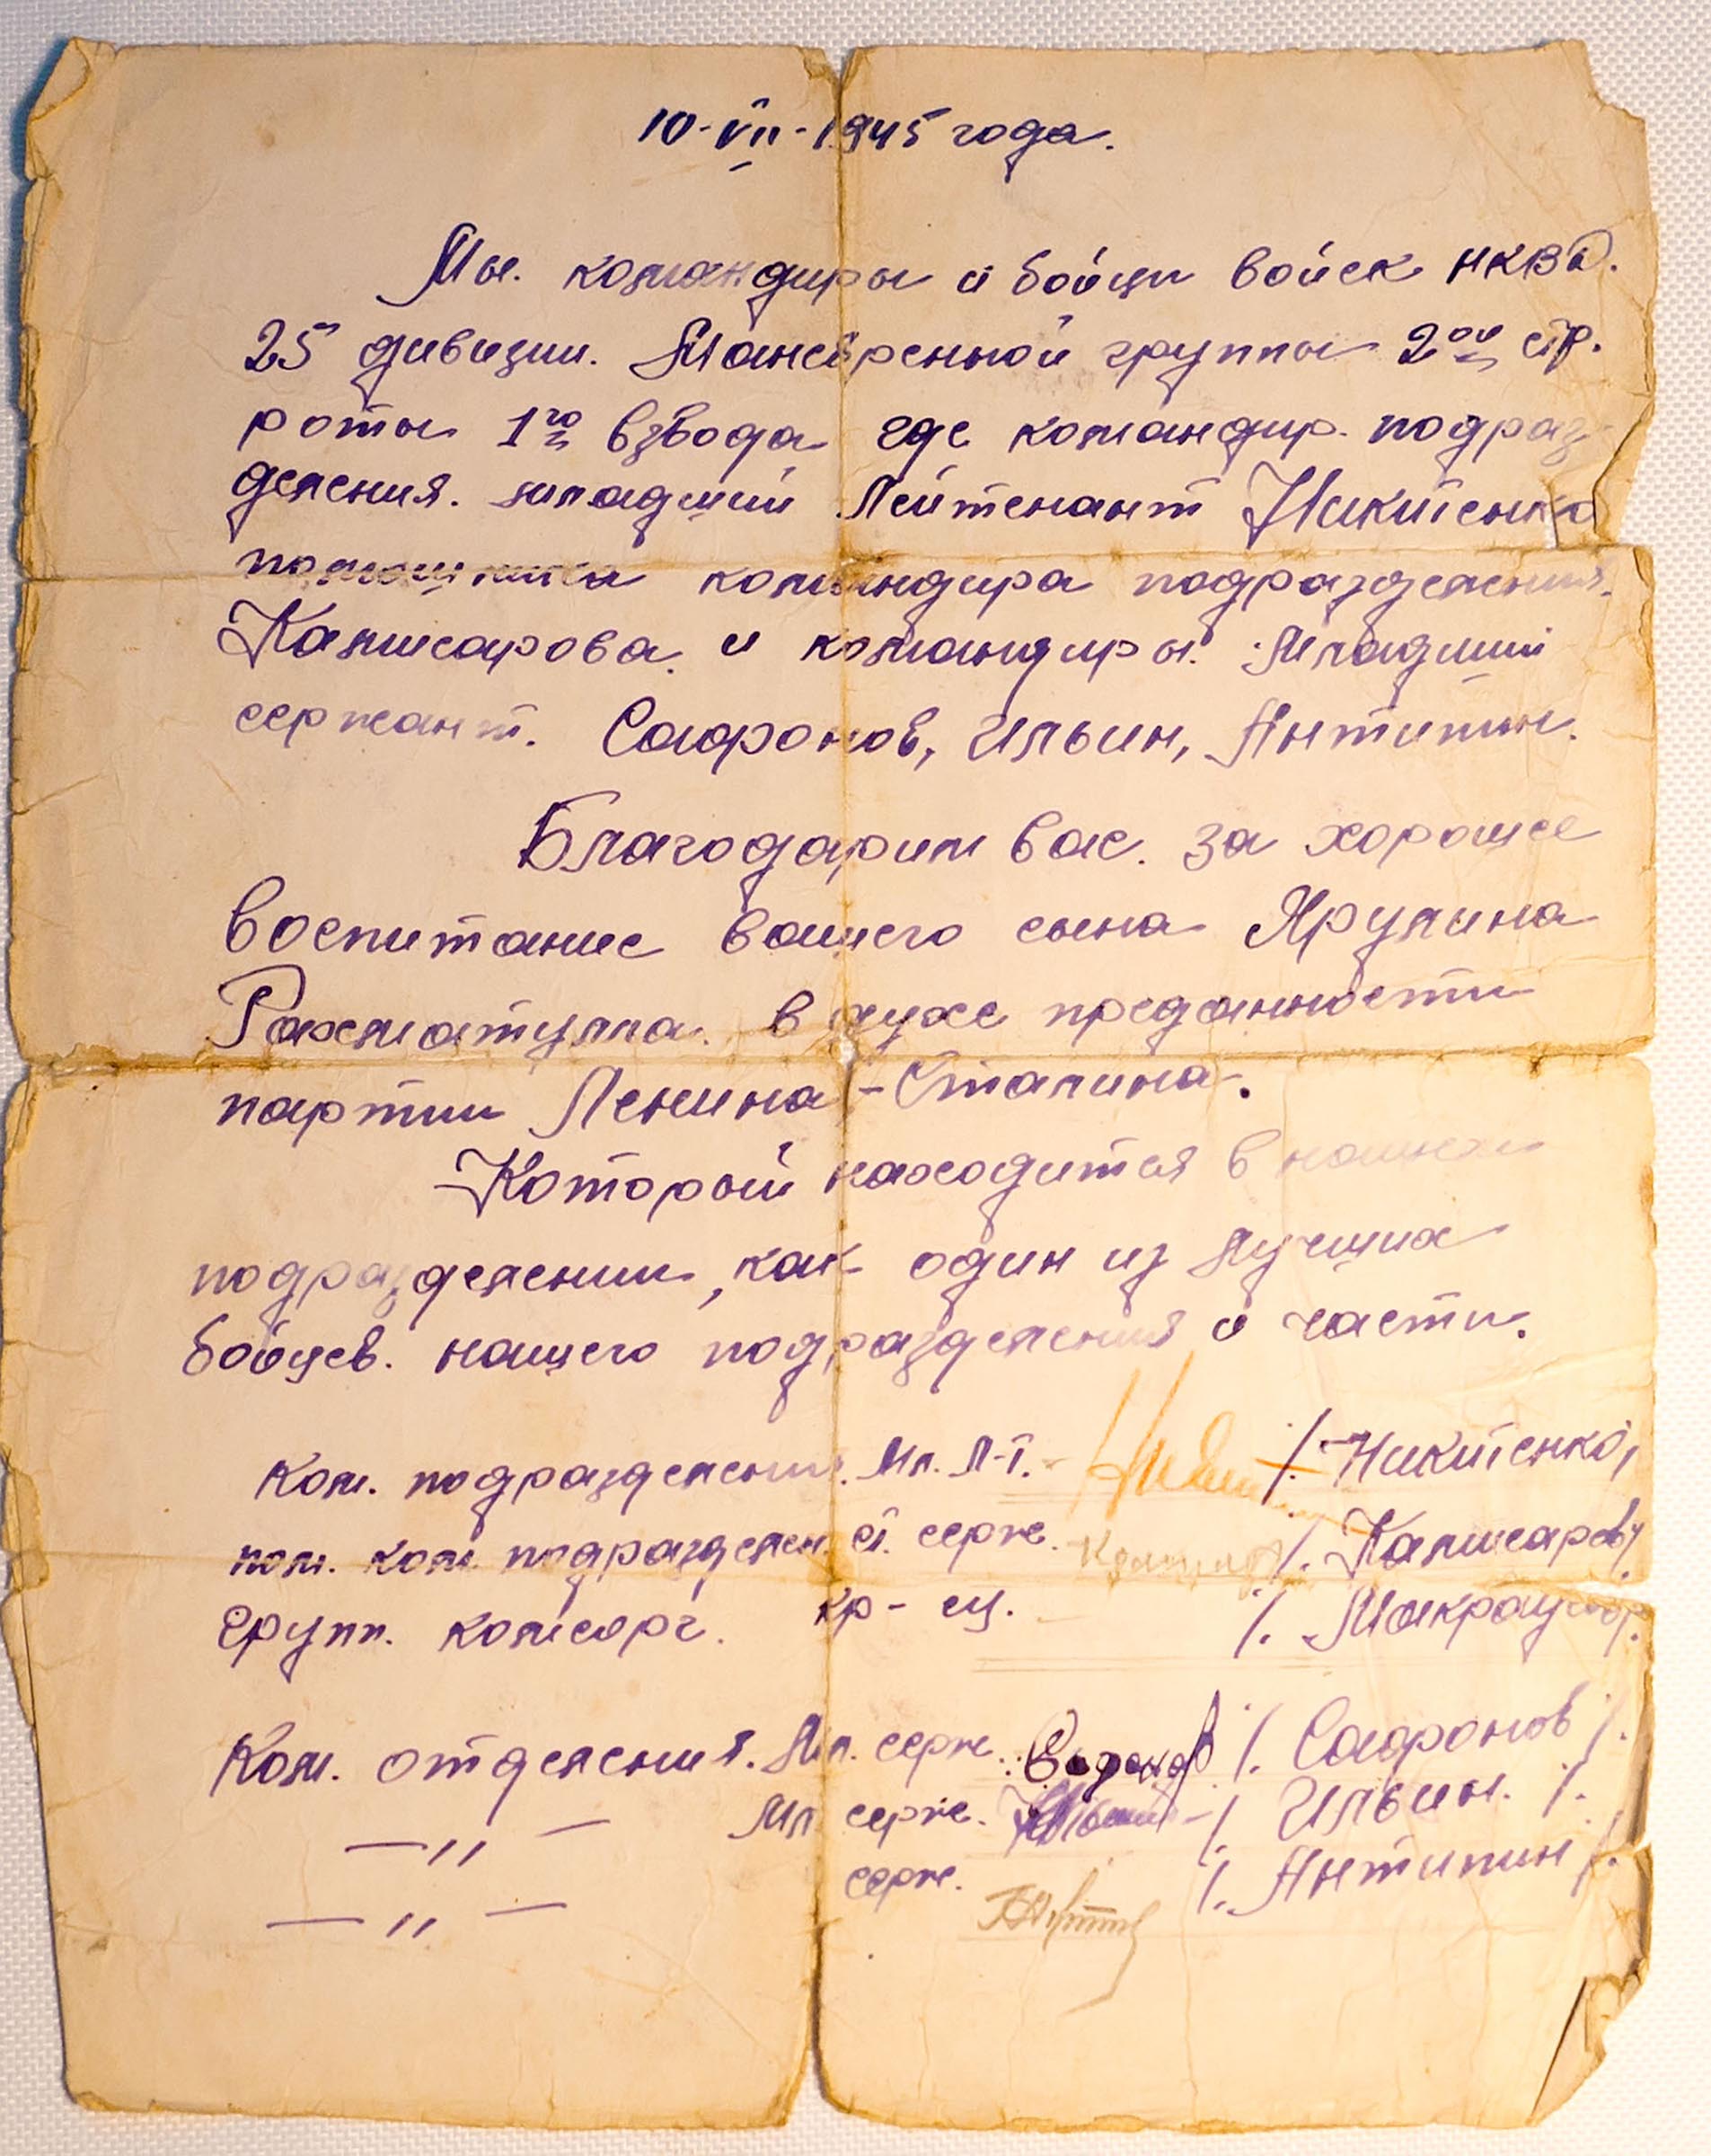 10-VII-1945 года.
Мы. командиры и бойцы войск НКВД.
25 дивизии. Маневренной группы 2ой стр.
роты 1го взвода где командир. подраз
деления. младший Лейтенант Никитенко
помощника командира подразделения.
Калмсарова. и командиры. Младший
сержант. Сафронов, Ильин, Антипин.
Благодарим вас. за хорошее
воспитание вашего сына Ярулина
Рахматулла. в духе преданности
партии Ленина-Сталина.
Который находится в нашем
подразделении, как один из лучших
бойцев. нашего подразделения и части.
Ком. подразделения. Мл. Л-т. /. Никитенко/
пом. ком. подразделен. ст. серж. /. Калмсаров/.
Групп. комсорг. кр-ец. /.
Ком. отделения. Мл. серж. Сафронов /. Сафронов /.
—„— Мл серж. Ильин /. Ильин. /.
—„— серж. /. Антипин /.